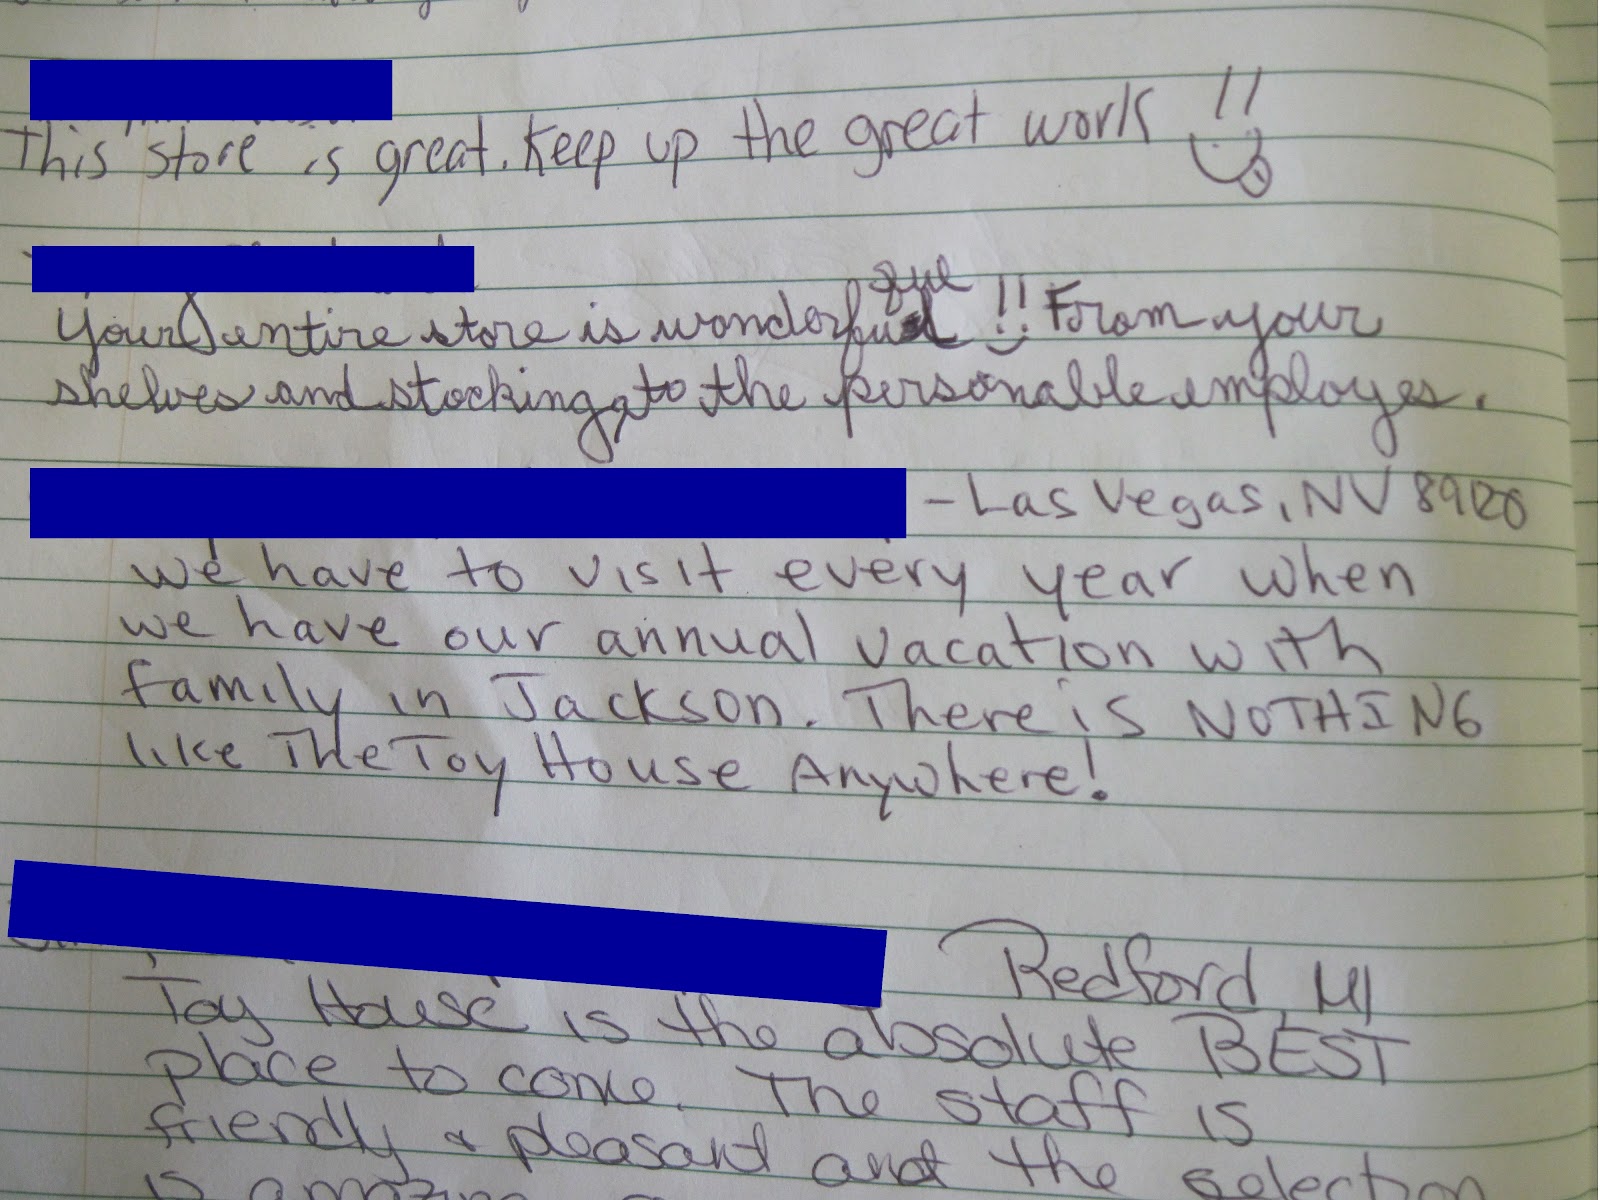 This store is great. Keep up the great work !!
Your entire store is wonderful !! From your
shelves and stocking, to the personable employes.
- Las Vegas, NV 89120
We have to visit every year when
we have our annual vacation with
family in Jackson. There is NOTHING
like The Toy House Anywhere!
Redford, MI
Toy House is the absolute BEST
place to come. The staff is
friendly & pleasant and the selection
is amazing